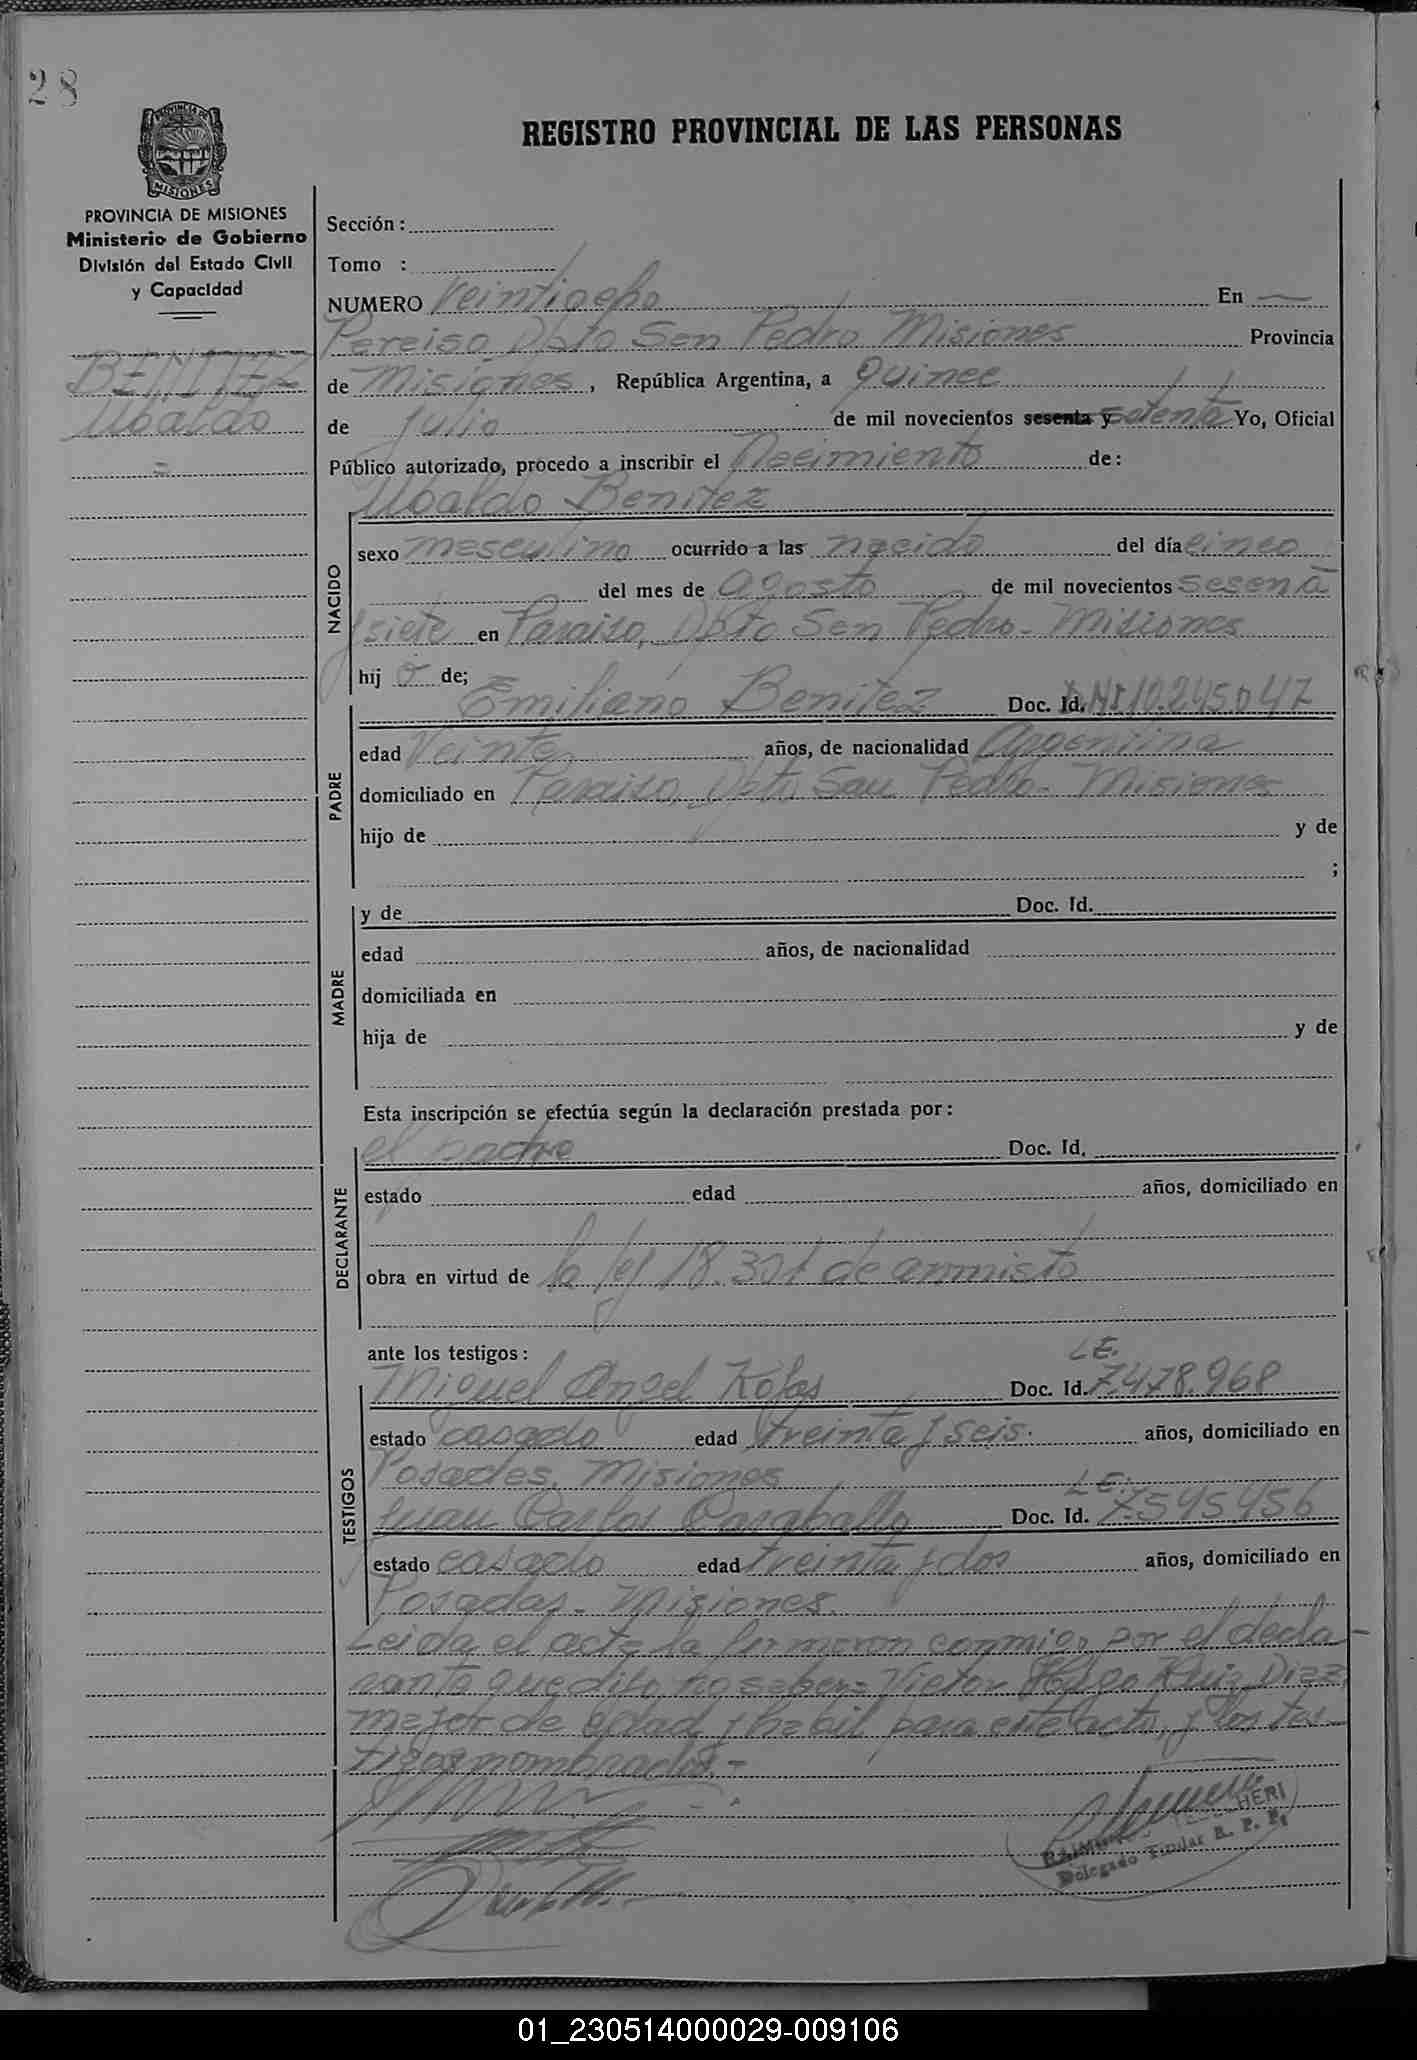 28
REGISTRO PROVINCIAL DE LAS PERSONAS
PROVINCIA DE MISIONES
PROVINCIA DE MISIONES
Ministerio de Gobierno
División del Estado Civil
y Capacidad
BENITEZ
Ubaldo
=
Sección :
Tomo :
NUMERO Veintiocho En —
Pereiso, Dpto Sen Pedro Misiones Provincia
de Misiones, República Argentina, a Quince
de Julio de mil novecientos sesenta y setenta Yo, Oficial
Público autorizado, procedo a inscribir el Necimiento de:
Ubaldo Benitez
NACIDO
sexo mesculino ocurrido a las nacido del día cinco
del mes de Agosto de mil novecientos sesenta
y siete en Paraiso, Dpto Sen Pedro - Misiones
hij o de;
PADRE
Emiliano Benitez Doc. Id. DNI 10.245.047
edad Veinte años, de nacionalidad Argentina
domiciliado en Paraiso, Dpto San Pedro - Misiones
hijo de y de
;
MADRE
y de Doc. Id.
edad años, de nacionalidad
domiciliada en
hija de y de
Esta inscripción se efectúa según la declaración prestada por :
DECLARANTE
el padre Doc. Id.
estado edad años, domiciliado en
obra en virtud de la ley 18.301 de anmisto
ante los testigos :
TESTIGOS
L E.
Miguel Angel Doc. Id. 7.478.968
estado casado edad treinta y seis. años, domiciliado en
Posades. Misiones
L E.
Juan Carlos Doc. Id. 7.545.456
estado casado edad treinta y dos años, domiciliado en
Posadas - Misiones.
Leida el acta la firmaron conmigo por el decla-
rante que dijo no saber: Victor Hugo Ruiz Diaz,
mejor de edad y habil para este acto, y los tes-
tigos nombrados. -
HERI
Delegado Titular R. P. P.
01_230514000029-009106